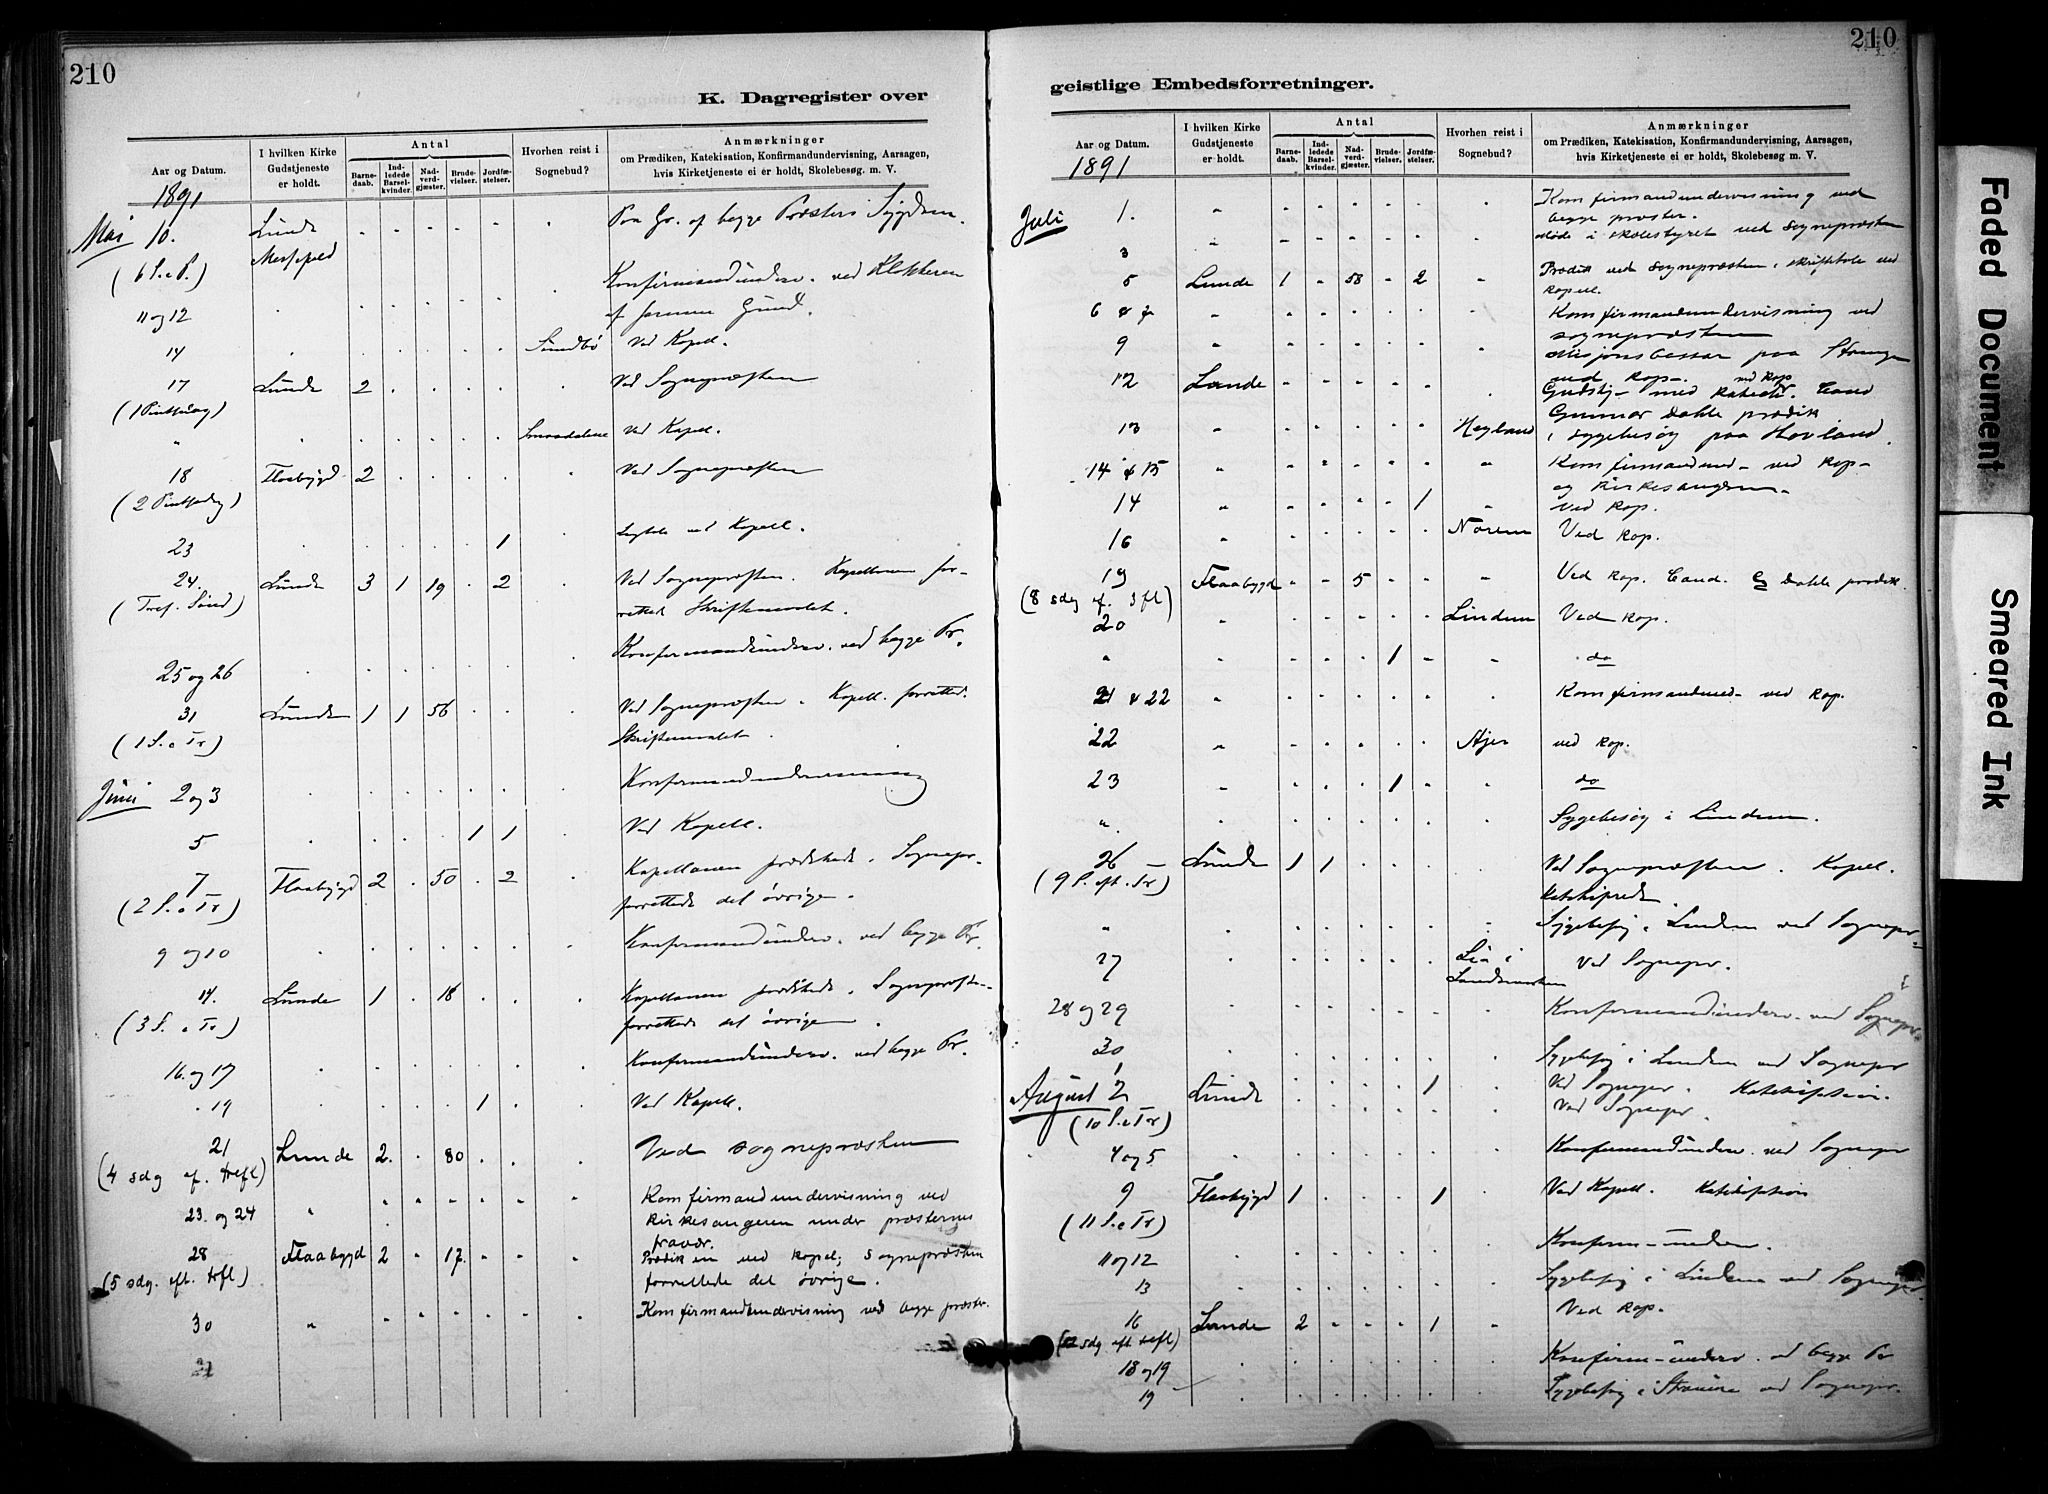 210
K. Dagregister over
Aar og Datum.
I hvilken Kirke Gudstjeneste er holdt.
Antal
Barnedaab.
Indledede Barselkvinder.
Nadverdgjæster.
Brudevielser.
Jordfæstelser.
Hvorhen reist i Sognebud?
Anmærkninger
om Prædiken, Katekisation, Konfirmandundervisning, Aarsagen,
hvis Kirketjeneste ei er holdt, Skolebesøg m. V.
1891
Mai 10. Lunde Paa Gr. af begge Præsters Sygdom.
(6 S. e P.)
11 og 12 Konfirmandunderv. ved Klokkeren
af samme Grund.
14 Sundbø Ved Kapell.
17 Lunde 2 Ved Sognepræsten
(1 Pintsedag)
" Ved Kapell.
18 Flaabygd 2 Ved Sognepræsten
(2 Pintsedag)
23 1 ved Kapell.
24. Lunde 3 1 19 2 Ved Sognepræsten. Kapellanen for-
(Tref. Sønd) rettet Skriftemaalet.
25 og 26 Konfirmandunderv. ved begge Pr.
31 Lunde 1 1 56 Ved Sognepræsten. Kapell. forrettet
(1 S. e Tr) Skriftemaalet.
Juni 2 og 3 Konfirmandundervisning
5 1 1 Ved Kapell.
7 Flaabygd 2 50 2 Kapellanen prædikede. Sognepr.
(2 S. e Tr) forrettede det øvrige.
9 og 10 Konfirmandunderv. ved begge Pr.
14. Lunde 1 18 Kapellanen prædikede. Sognepræsten
(3 S. e Tr) forrettede det øvrige.
16. og 17 Konfirmandunderv. ved begge Pr.
19 1 Ved Kapell.
21 Lunde 2. 80 Ved sognepræsten
(4 sdg ef. trefl)
23. og 24 " Komfirmandundervisning ved
kirkesangeren under præsternes
fravær.
28 Flaabygd 2 17. Prædiken ved kapel; sognepræsten
(5 sdg. eft. trfl) forrettede det øvrige.
30 " Komfirmandundervisning ved begge præster.
210
geistlige Embedsforretninger.
Aar og Datum.
I hvilken Kirke Gudstjeneste er holdt.
Antal
Barnedaab.
Indledede Barselkvinder.
Nadverdgjæster.
Brudevielser.
Jordfæstelser.
Hvorhen reist i Sognebud?
Anmærkninger
om Prædiken, Katekisation, Konfirmandundervisning, Aarsagen,
hvis Kirketjeneste ei er holdt, Skolebesøg m. V.
1891
Juli 1. " Komfirmandundervisning ved
begge præster.
3 " Møde i skolestyret ved sognepræsten
5 Lunde 1 58 2 " Prædik ved sognepræsten, skriftetale ved
kapell.
6 " Komfirmandundervisning ved
sognepræsten
9 " Misjonsbassar paa
ved Kap.
12 Lunde Gudstj. ved Kap. Cand
Gunnar Dahle prædik
13 " Høyland i sygebesøg paa Hovland.
14 & 15 " " Komfirmandund. ved Kap.
og Kirkesangeren.
14 " 1 " Ved Kap.
16 Norem Ved Kap.
19 Flaabygd 5 " Ved Kap. Cand. G Dahle prædik.
(8 sdg ef. 3fl)
20 " Lindem Ved Kap.
" " 1 " do
21 & 22 " Komfirmandund. ved Kap.
22 " ved Kap.
23 " 1 do
" Sygebesøg i Lindem.
26 Lunde 1 1 Ved Sognepræsten. Kapell.
(9 S. eft. Tr)
" Sygebesøg i Lindem ved Sognepr.
27 Lia i Ved Sognepr.
28 og 29 Konfirmandunderv. ved Sognepr.
30 Sygebesøg i Lindem ved Sognepr
August 2 Lunde 1 Ved Sognepr. Katekisation.
(10 S. e Tr) Ved Sognepr.
4 og 5 Konfirmandunderv. ved Sognepr
9 Flaabygd 1 1 Ved Kapell. Katekisation
(11 S. e Tr)
11 og 12 Konfirm-underv.
13 Sygebesøg i Lindem ved Sognepr.
16 Lunde 2 1 " Ved Kap.
(12 sdg eft trefl)
18 og 19 Konfirm-underv. ved begge Pr
19 Sygebesøg i ved Sognepr.
Faded Document
Smeared Ink